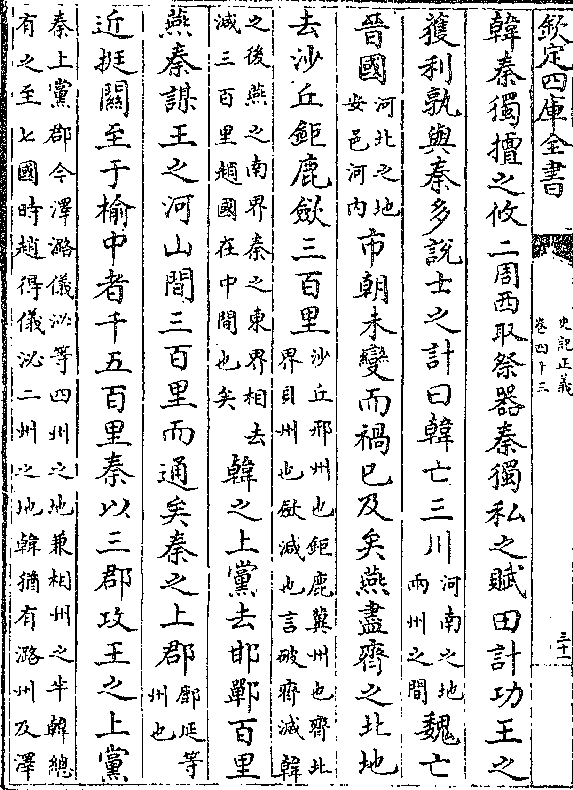 欽定四庫全書
史記正義
卷四十三
三十一
韓秦獨擅之攸二周西取祭器秦獨私之賦田計功王之
獲利孰與秦多說士之計曰韓亡三川
河南之地
兩州之間
魏亡
晉國
河北之地
安邑河内
市朝未變而禍已及矣燕盡齊之北地
去沙丘鉅鹿斂三百里
沙丘邢州也鉅鹿冀州也齊北
界貝州也斂減也言破齊減韓
之後燕之南界秦之東界相去
減三百里趙國在中間也矣
韓之上黨去邯鄲百里
燕秦謀王之河山間三百里而通矣秦之上郡
鄜延等
州也
近挺關至于榆中者千五百里秦以三郡攻王之上黨
秦上黨郡今澤潞儀沁等四州之地兼相州之半韓總
有之至七國時趙得儀沁二州之地韓猶有潞州及澤